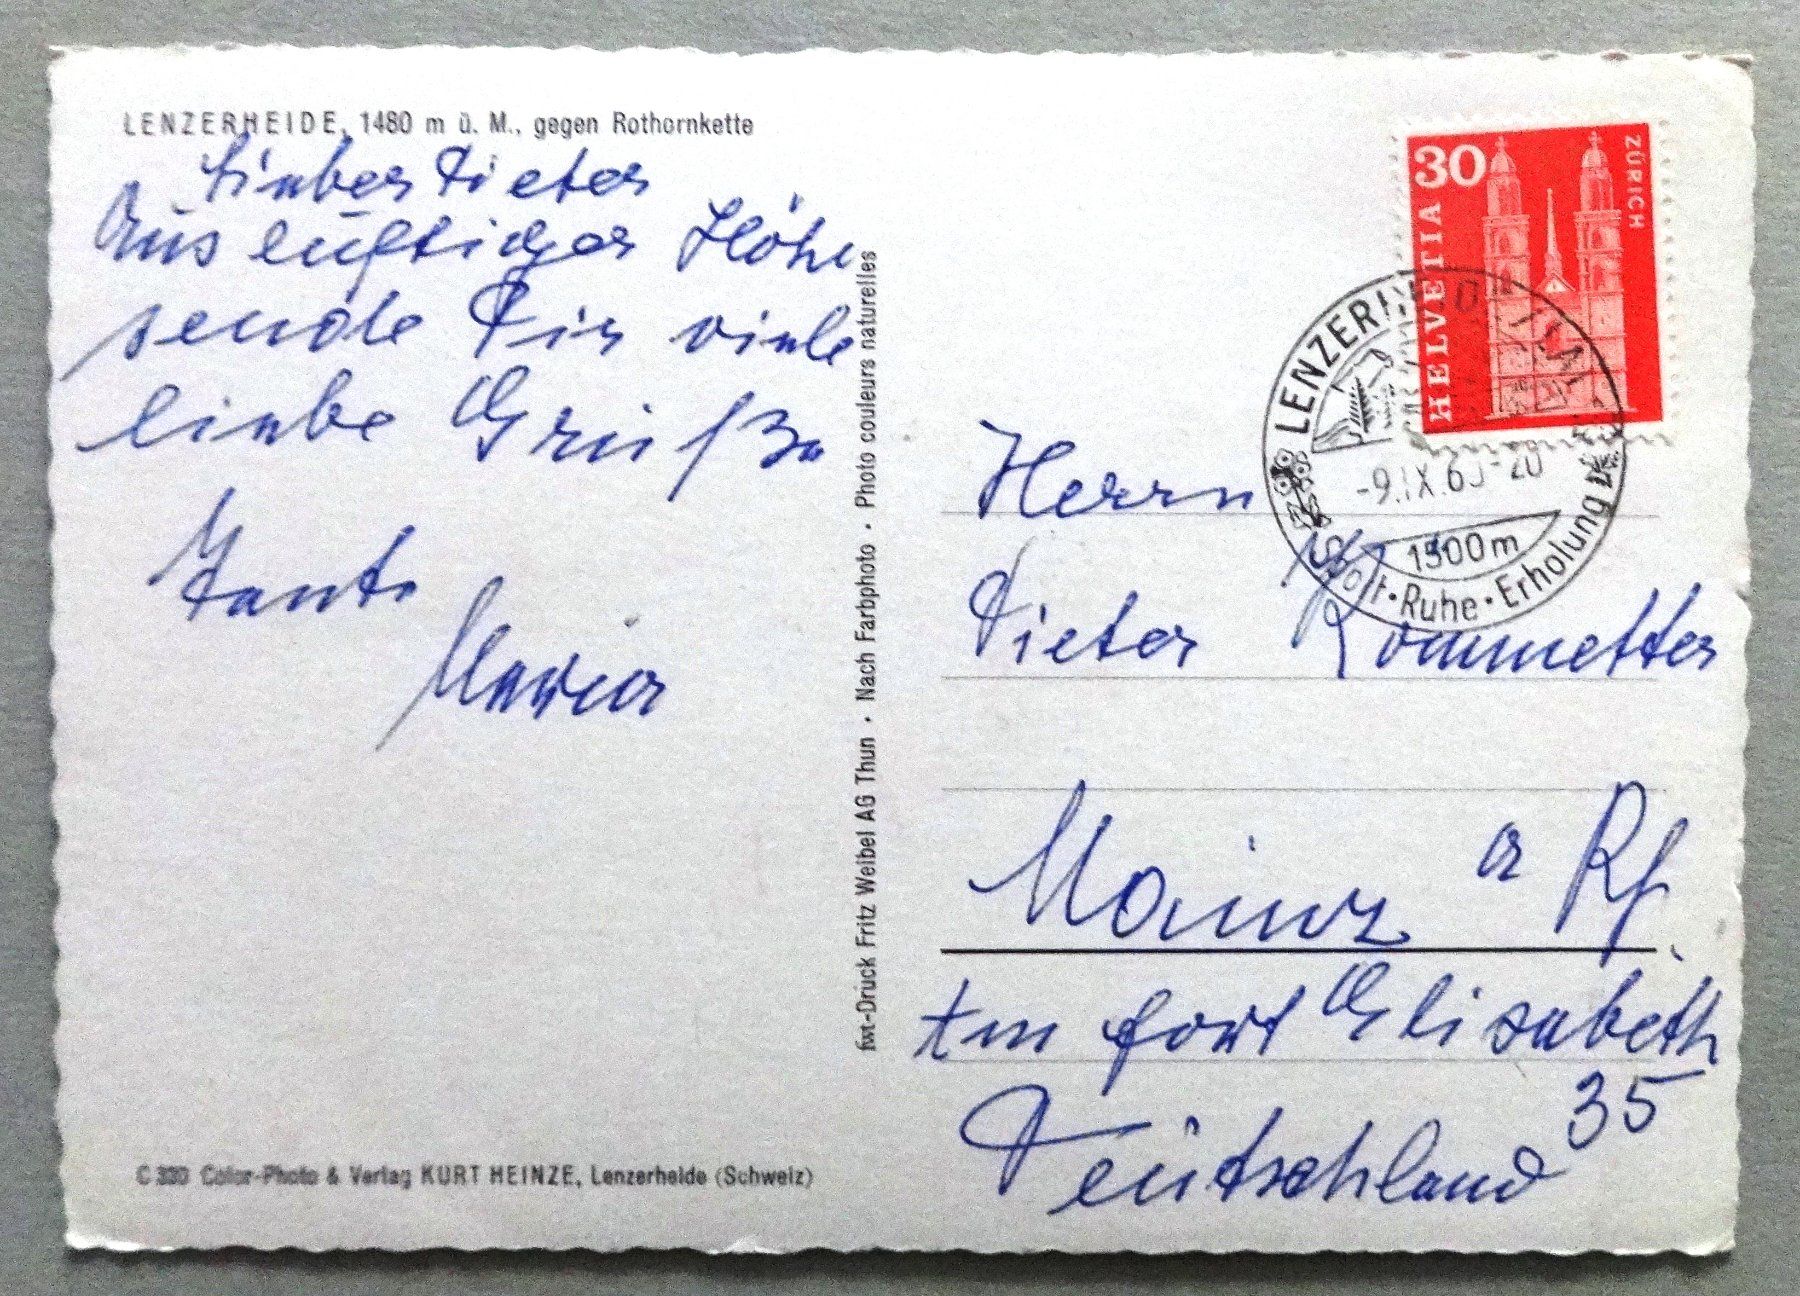 LENZERHEIDE, 1480 m ü. M., gegen Rothornkette
Lieber Dieter
Aus luftiger Höhe
sende Dir viele
liebe Grüße
Tante
Maria
C 330 Color-Photo & Verlag KURT HEINZE, Lenzerheide (Schweiz)
fwt-Druck Fritz Weibel AG Thun · Nach Farbphoto · Photo couleurs naturelles
30
HELVETIA
ZÜRICH
LENZERHEIDE
-9.IX.6 -20
1500 m
Sport · Ruhe · Erholung
Herrn
Dieter Kommetter
Mainz a Rh.
Am fort Elisabeth
35
Deutschland